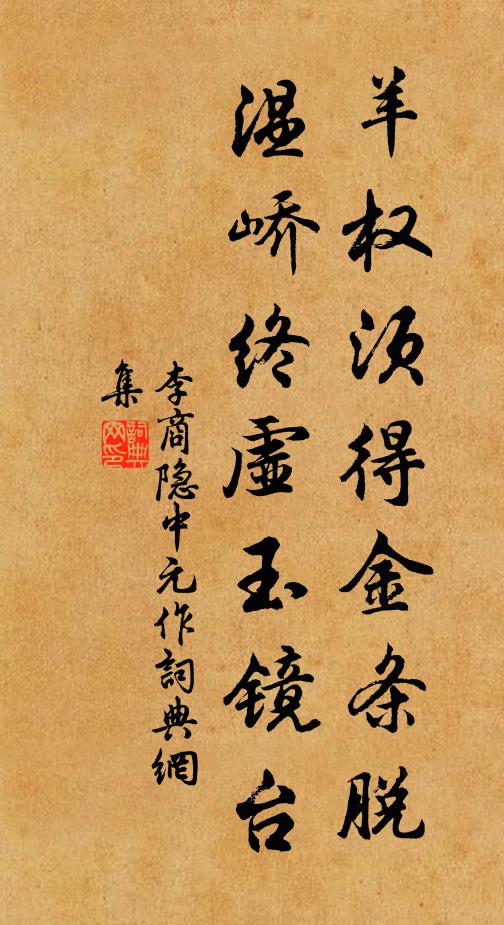 羊权须得金条脱
温峤终虚玉镜台
李商隐中元作詞典網
集
詞典
网印